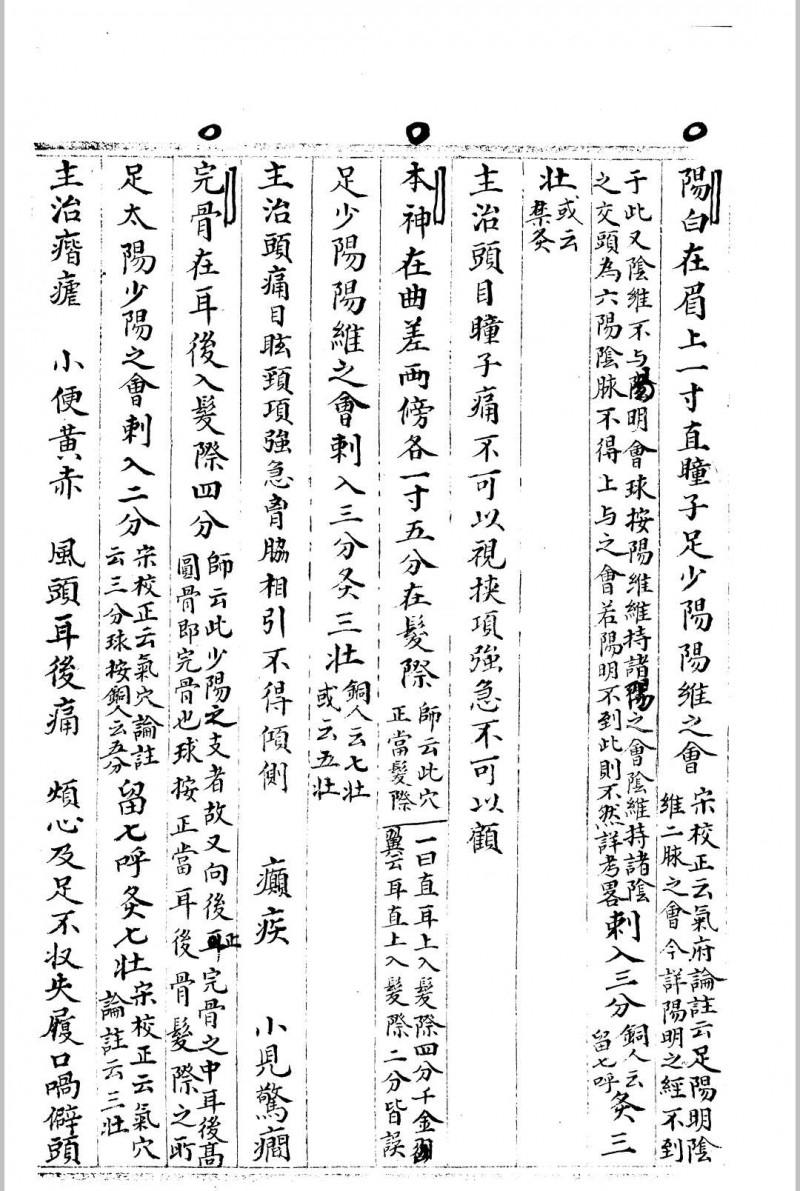 陽白在眉上一寸直瞳子足少陽陽維之會宋校正云氣府論註云足陽明陰維二脉之會今詳陽明之經不到
于此又陰維不与陽明會球按陽維維持諸陽之會陰維持諸陰之交頭為六陽陰脉不得上与之會若陽明不到此則不然詳考畧刺入三分銅人云留七呼灸三
壮或云禁灸
主治頭目瞳子痛不可以視挟項強急不可以顧
本神在曲差两傍各一寸五分在髮際師云此穴正當髮際一曰直耳上入髮際四分千金翼云耳直上入髮際二分皆誤
足少陽陽維之會刺入三分灸三壮銅人云七壮或云五壮
主治頭痛目眩頸項強急胷脇相引不得傾側 癲疾 小児驚癇
完骨在耳後入髮際四分師云此少陽之支者故又向後正完骨之中耳後髙圓骨即完骨也球按正當耳後骨髮際之所
足太陽少陽之會刺入二分宋校正云氣穴論註云三分球按銅人云五分留七呼灸七壮宋校正云氣穴論註云三壮
主治痦瘧 小便黄赤 風頭耳後痛 煩心及足不収失履口喎僻頭